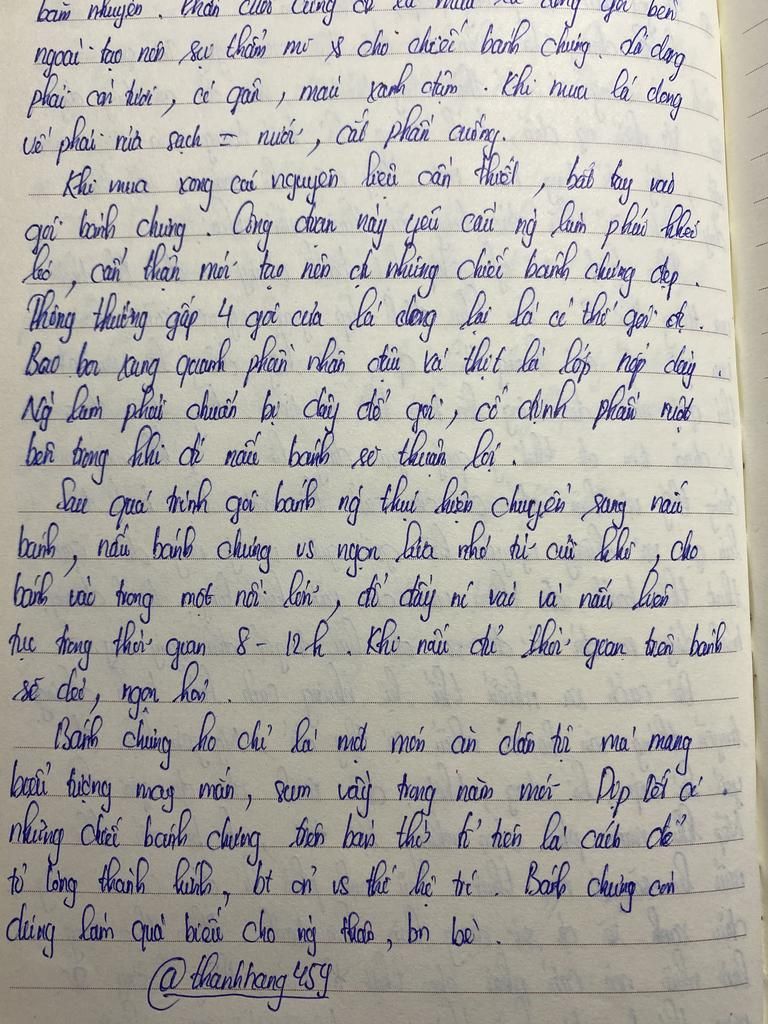 băm nhuyễn. Phần cuối cùng để
ngoài tạo nên sự thẩm mĩ cho chiếc bánh chưng. Lá dong
phải còn tươi, có gân, màu xanh đậm. Khi mua lá dong
về phải rửa sạch = nước, cắt phần cuống.
Khi mua xong các nguyên liệu cần thiết, bắt tay vào
gói bánh chưng. Công đoạn này yêu cầu ng làm phải khéo
léo, cẩn thận mới tạo nên đc những chiếc bánh chưng đẹp.
Thông thường gấp 4 góc của lá dong lại là có thể gói đc.
Bao bọc xung quanh phần nhân đậu và thịt là lớp nếp dày.
Ng làm phải chuẩn bị dây để gói, cố định phần ruột
bên trong khi đi nấu bánh sẽ thuận lợi.
Sau quá trình gói bánh ng thực hiện chuyển sang nấu
bánh, nấu bánh chưng vs ngọn lửa nhỏ từ củi khô, cho
bánh vào trong một nồi lớn, đổ đầy nc vào và nấu liên
tục trong thời gian 8 - 12h. Khi nấu đủ thời gian trên bánh
sẽ dẻo, ngon hơn.
Bánh chưng ko chỉ là một món ăn dân tộc mà mang
biểu tượng may mắn, sum vầy trong năm mới. Dịp Tết có
những chiếc bánh chưng trên bàn thờ tổ tiên là cách để
tỏ lòng thành kính, bt ơn vs thế hệ trc. Bánh chưng còn
dùng làm quà biếu cho ng thân, bn bè.
@thanhhang459